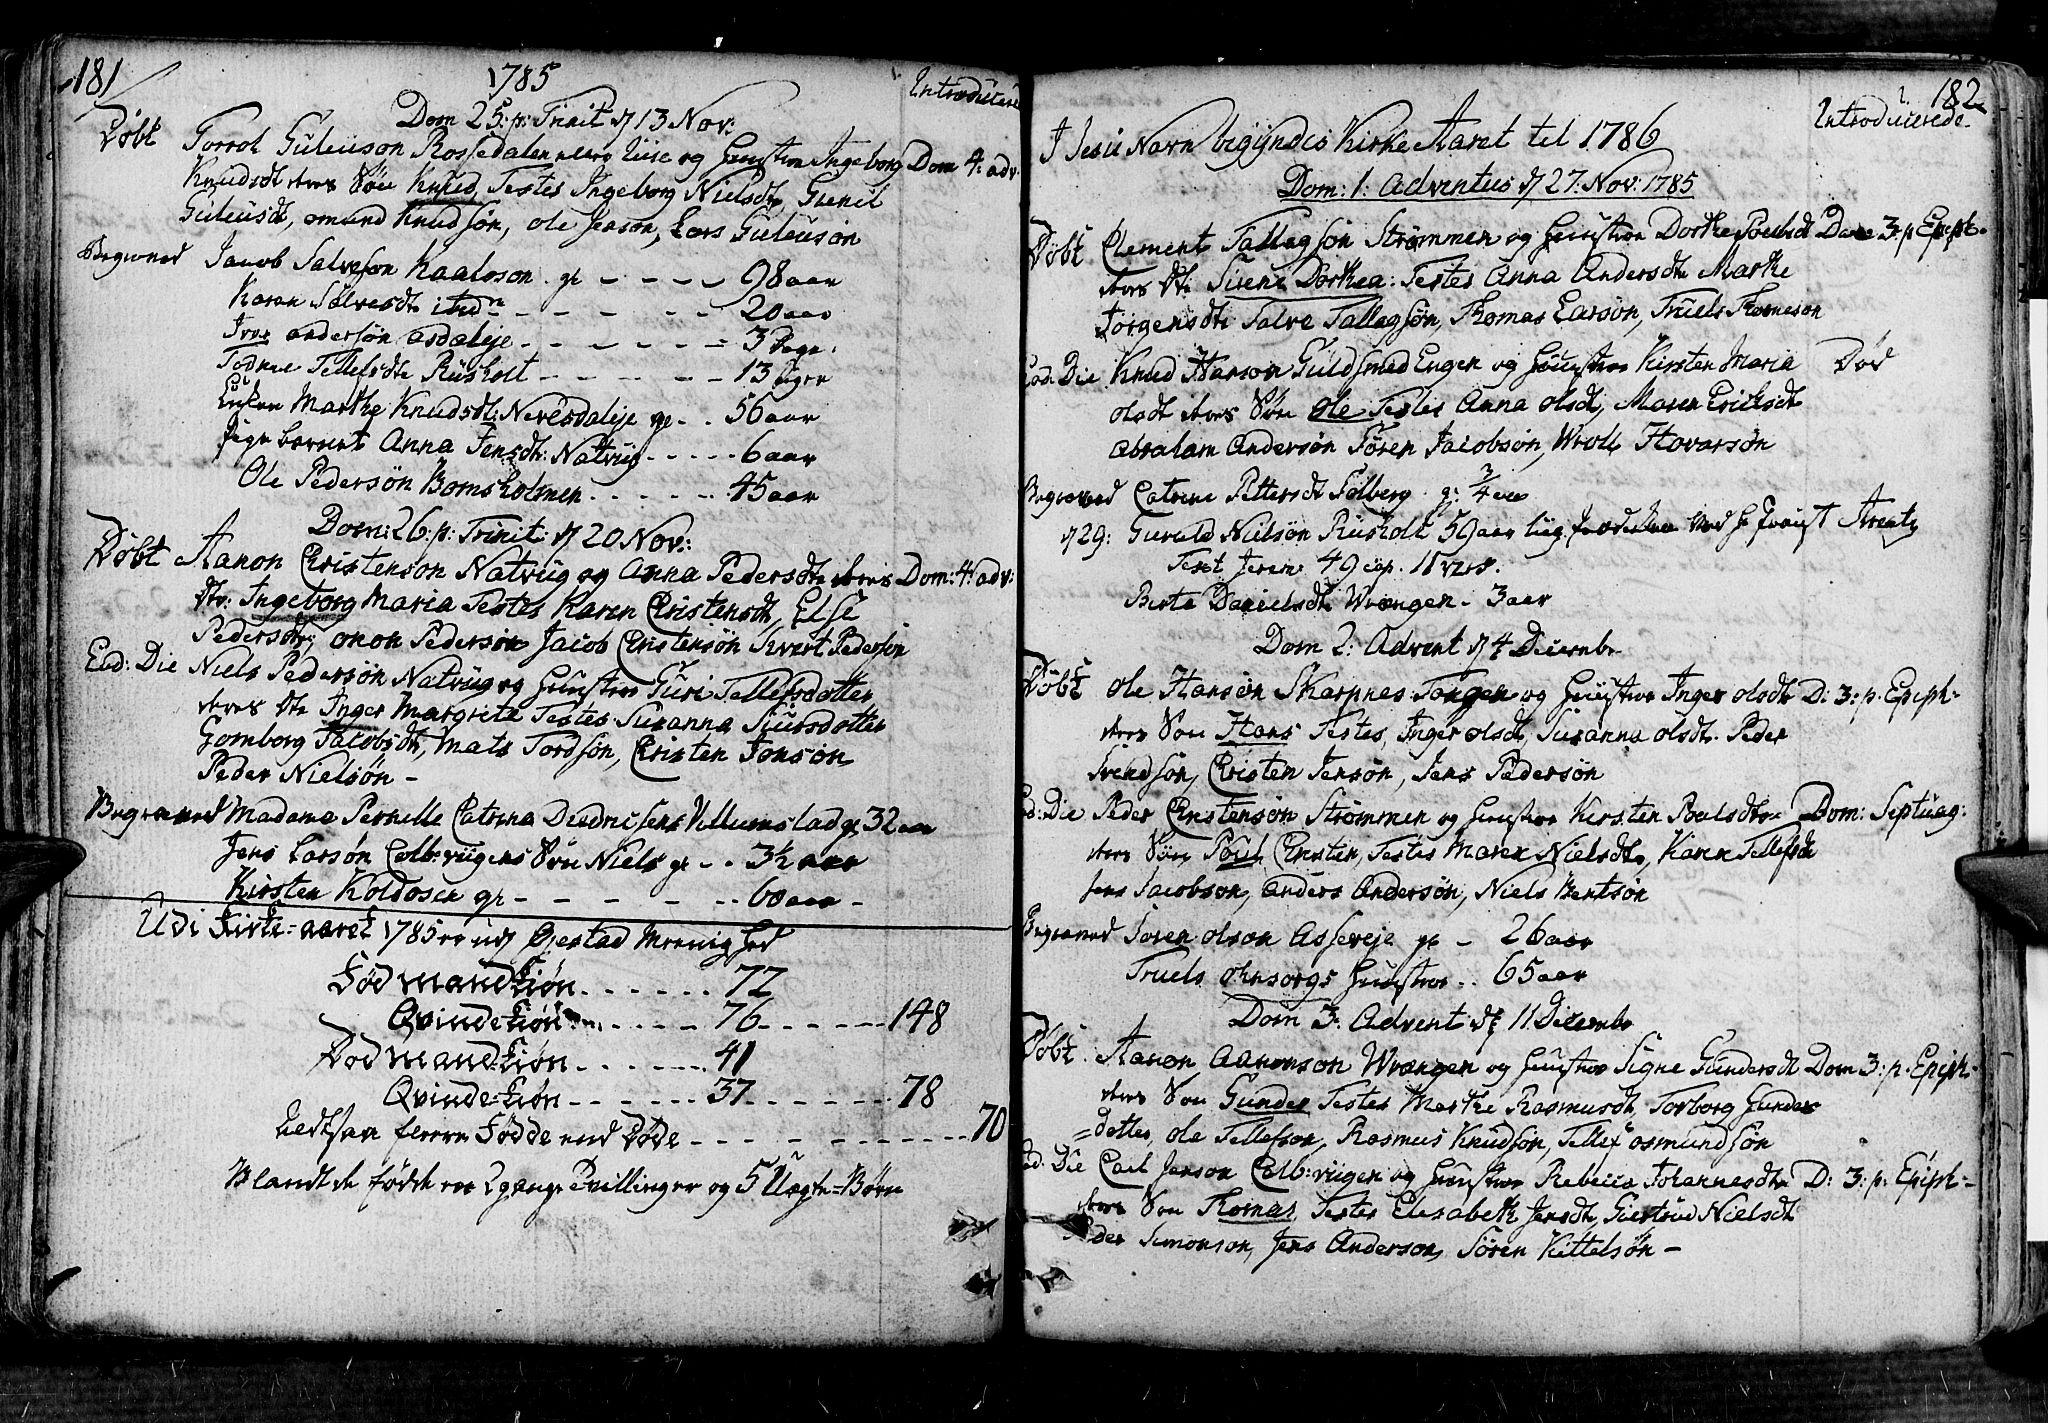 181
1785
Introducere
Dom 25: p: Trinit d 13 Nov:
Døbt Torrol Guleuson Rossedalen og Hustroe Ingeborg Dom 4: adv.
Knudsdt deres Søn Knud, Testes Ingeborg Nielsdt, Gunil
Guleusdt, omund Knudsøn, Ole Jenson, Lars Guleuson
Begraved Jacob Salveson Kaaloson. gl - - - - 98 aar
Karen Sølvesdt ibid - - - - - 20 aar
Iver andersøn asdaleje - - - - - 3 Dage.
Todne Tellefsdtr Rusholt - - - - - 13 uger
Enken Marthe Knudsdt: Nevesdaleje gl - . 56 aar
Pige barnet Anna Jensdt: Natvig . . . . . 6 aar
Ole Pedersøn Bomsholmen . . . . . . 45 aar
Dom: 26: p: Trinit: d 20 Nov:
Døbt Aanon Christenson Natvug og Anna Pedersdt deres Dom: 4: adv:
dtr. Ingeborg Maria Testes Karen Christensdt, Else
Pedersdtr, onon Pedersøn Jacob Christensøn Sivert Pedersøn
Eod: Die Niels Pedersøn Natvug og Hustroe Guri Tellefsdotter
deres dtr Inger Margrete Testes Susanna Siursdotter
Gomborg Jacobsdt, Mats Tordsøn, Christen Jonsøn
Peder Nielsøn -
Begraved Madame Pernille Catrina Diedrichsens Villumstad gl 32 aar
Jens Larsøn Colb:viigens Søn Niels gl - . . 3½ aar
Kirsten Koldosen gl - - - - - . . 60 aar -
Udi Kirke-aaret 1785 er udj Øjestad Menighed
Fød mandkiøn . . . . . . . 72
Qvindekiøn . . . . . 76 . . . . . . 148
Død mandkiøn . . . . . . . 41
Qvinde-kiøn . . . . . . . 37 . . . . . . . 78
Fleere Fødde end Døde - - - - - - - 70
Blandt de fødde er 2 gange Tvillinger og 5 Uægte-Børn
182
Introducerede.
I Jesu Navn begyndes Kirke Aaret til 1786
Dom: 1: Adventus d 27: Nov: 1785
Døbt Clement Tallagsøn Strømmen og Hustroe Dorthe Poulsdt Dom 3: p Epiph-
deres dtr Sirene Dorthea: Testes Anna Andersdtr Marthe
Jørgensdtr Salve Tallagsøn, Thomas Larsøn, Truels Thomeson
Eod: Die Knud Hanson Guldsmed Engen og Hustroe Kirsten Maria Død
olsdt deres Søn Ole Testes Anna olsdt, Maren Ericksdt
abraham Andersøn Søren Jacobsøn, Wroll Hovarsøn
Begraved Catrine Pettersdt Solberg. gl. ¾ aar
d 29: Gunvald Nielsøn Rusholt 59 aar Liig Prædiken ved H. Arentz
Text Jerem: 49 cap. 11 vers.
Berte Danielsdt Wrængen - 3 aar
Dom 2: Advent d 4 Decembr
Døbt Ole Hansøn Skarpnes Tongen og Hustroe Inger olsdt D: 3: p. Epiph-
deres Søn Hans Testes, Inger olsdt, Susanna olsdt. Peder
Svendsøn, Christen Jensøn, Jens Pedersøn
Eod: Die Peder Christensøn Strømmen og Hustroe Kirsten Poulsdtr Dom: Septuag:
deres Søn Poul Christen, Testes Maren Nielsdtr, Karen Tellefsdt
Jens Jacobson, anders Andersøn, Niels Bentsøn
Begraved Søren olson Asseveje gl - 26 aar
Truels ohnsorgs Hustroe . . 65 aar
Dom 3: Advent d 11 Decembr
Døbt Aanon Aanonson Wrængen og Hustroe Signe Gundersdt Dom 3: p. Epiph-
deres Søn Gunder Testes Marthe Rasmusdt, Torborg Gunders
=dotter, ole Tellefson, Rasmus Knudsøn, Tellef osmundsøn
Eod: Die Carl Jenson Colb:viigen og Hustroe Rebecca Johannesdtr D: 3: p. Epiph-
deres Søn Thomas, Testes Elisabeth Jensdt, Giertrud Nielsdt
Peder Simonson, Jens Anderson, Søren Kittelsøn -